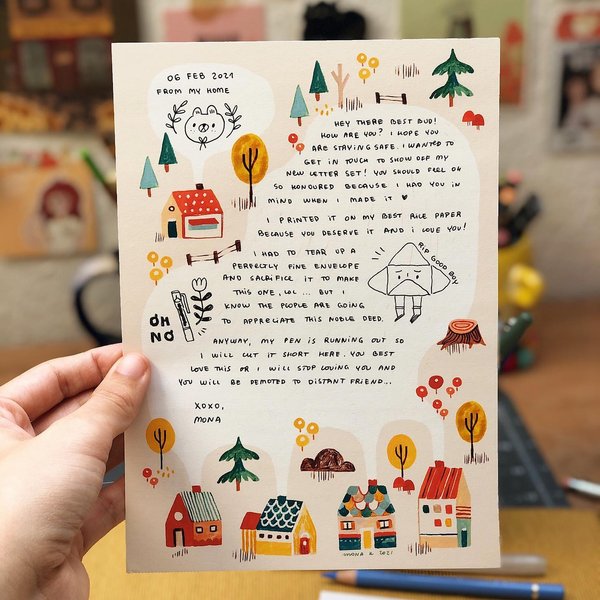 06 FEB 2021
FROM MY HOME
HEY THERE BEST BUD!
HOW ARE YOU? I HOPE YOU
ARE STAYING SAFE. I WANTED TO
GET IN TOUCH TO SHOW OFF MY
NEW LETTER SET! YOU SHOULD FEEL OH
SO HONOURED BECAUSE I HAD YOU IN
MIND WHEN I MADE IT ♥
I PRINTED IT ON MY BEST RICE PAPER
BECAUSE YOU DESERVE IT AND I LOVE YOU!
I HAD TO TEAR UP A
PERFECTLY FINE ENVELOPE
AND SACRIFICE IT TO MAKE
THIS ONE, LOL ... BUT I
KNOW THE PEOPLE ARE GOING
TO APPRECIATE THIS NOBLE DEED.
RIP GOOD BOY
OH
NO
ANYWAY, MY PEN IS RUNNING OUT SO
I WILL CUT IT SHORT HERE. YOU BEST
LOVE THIS OR I WILL STOP LOVING YOU AND
YOU WILL BE DEMOTED TO DISTANT FRIEND...
XOXO,
MONA
MONA K 2021